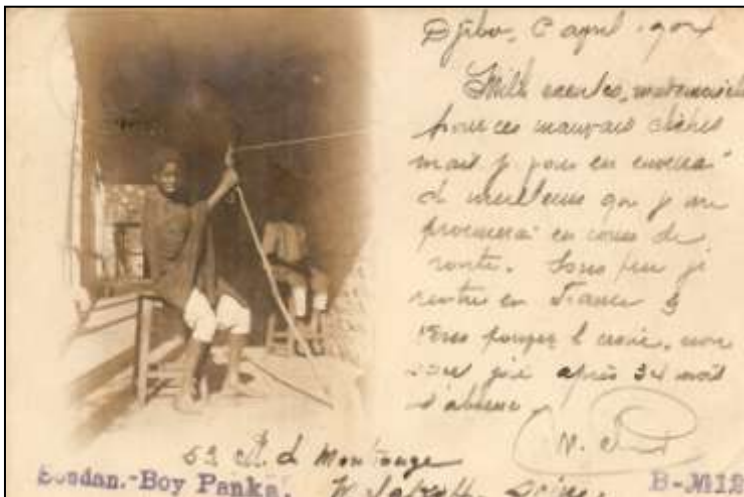 Djibo, 6 april 1904
Mille excuses, mademoiselle
pour ces mauvais clichés
mais je vous en enverrai
de meilleurs que je me
procurerai en cours de
route. Sous peu je
rentre en France &
vous pouvez le croire, non
sans joie après 34 mois
d'absence
52 de Montrouge
Soudan.-Boy Panka.
B-M12